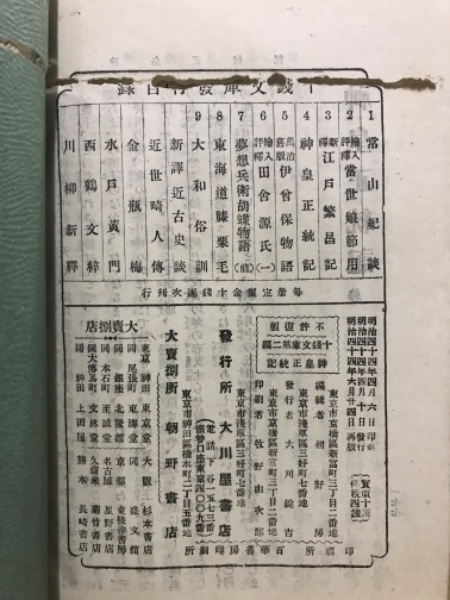 十錢文庫發行目録
1 常山紀談
2 評釋插入 當世娘節用
3 新釋 江戸繁昌記
4 神皇正統記
5 萬治舊版 伊曾保物語
6 評釋插入 田舍源氏(一)
7 夢想兵衛胡蝶物語(前)
8 東海道膝栗毛
9 大和俗訓
新譯近古史談
近世畸人傳
金瓶梅
水戸黄門
西鶴文粹
川柳新釋
毎册定價金十錢逐次刊行
明治四十四年四月六日印刷
明治四十四年四月十日發行
明治四十四年六月廿四日再版
不許復製
十錢文庫第二編
神皇正統記
東京市京橋區新富町三丁目二番地
編輯者 朝野房
東京市淺草區三好町七番地
發行者 大川錠吉
東京市京橋區新富町三丁目二番地
印刷者 牧野由次郎
東京市淺草區三好町七番地
發行所 大川屋書店
電話下谷一五七三番
振替口座東京四〇〇九番
東京市神田區橋本町二丁目五番地
大賣捌所 朝野書店
大賣捌店
東京神田 東京堂
同尾張町 東海堂
同銀座 北隆館
同本石町 至誠堂
同大傳馬町 文林堂
同神田 上田屋
大阪 杉本書店
同 盛文館
京都 東枝書房
名古屋 星野書店
久留米 菊竹書店
熊本 長崎書店
印刷所 百華書房印刷所